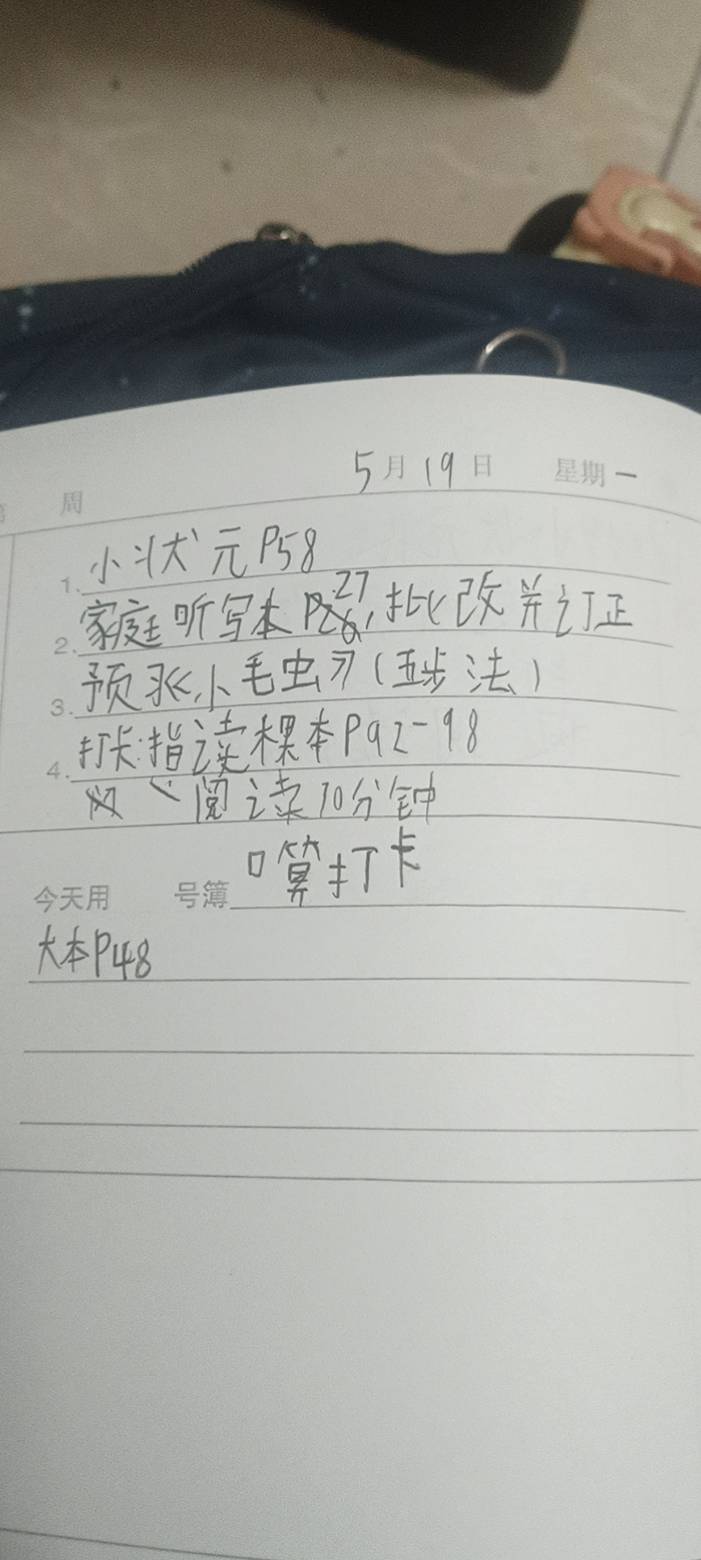 周 5月19日 星期一
1. 小状元P58
2. 家庭听写本P27,批改并订正
3. 预习《小毛虫》(五步法)
4. 打卡:指读课本P92-98
阅读10分钟
口算打卡
今天用 号簿
大本P48